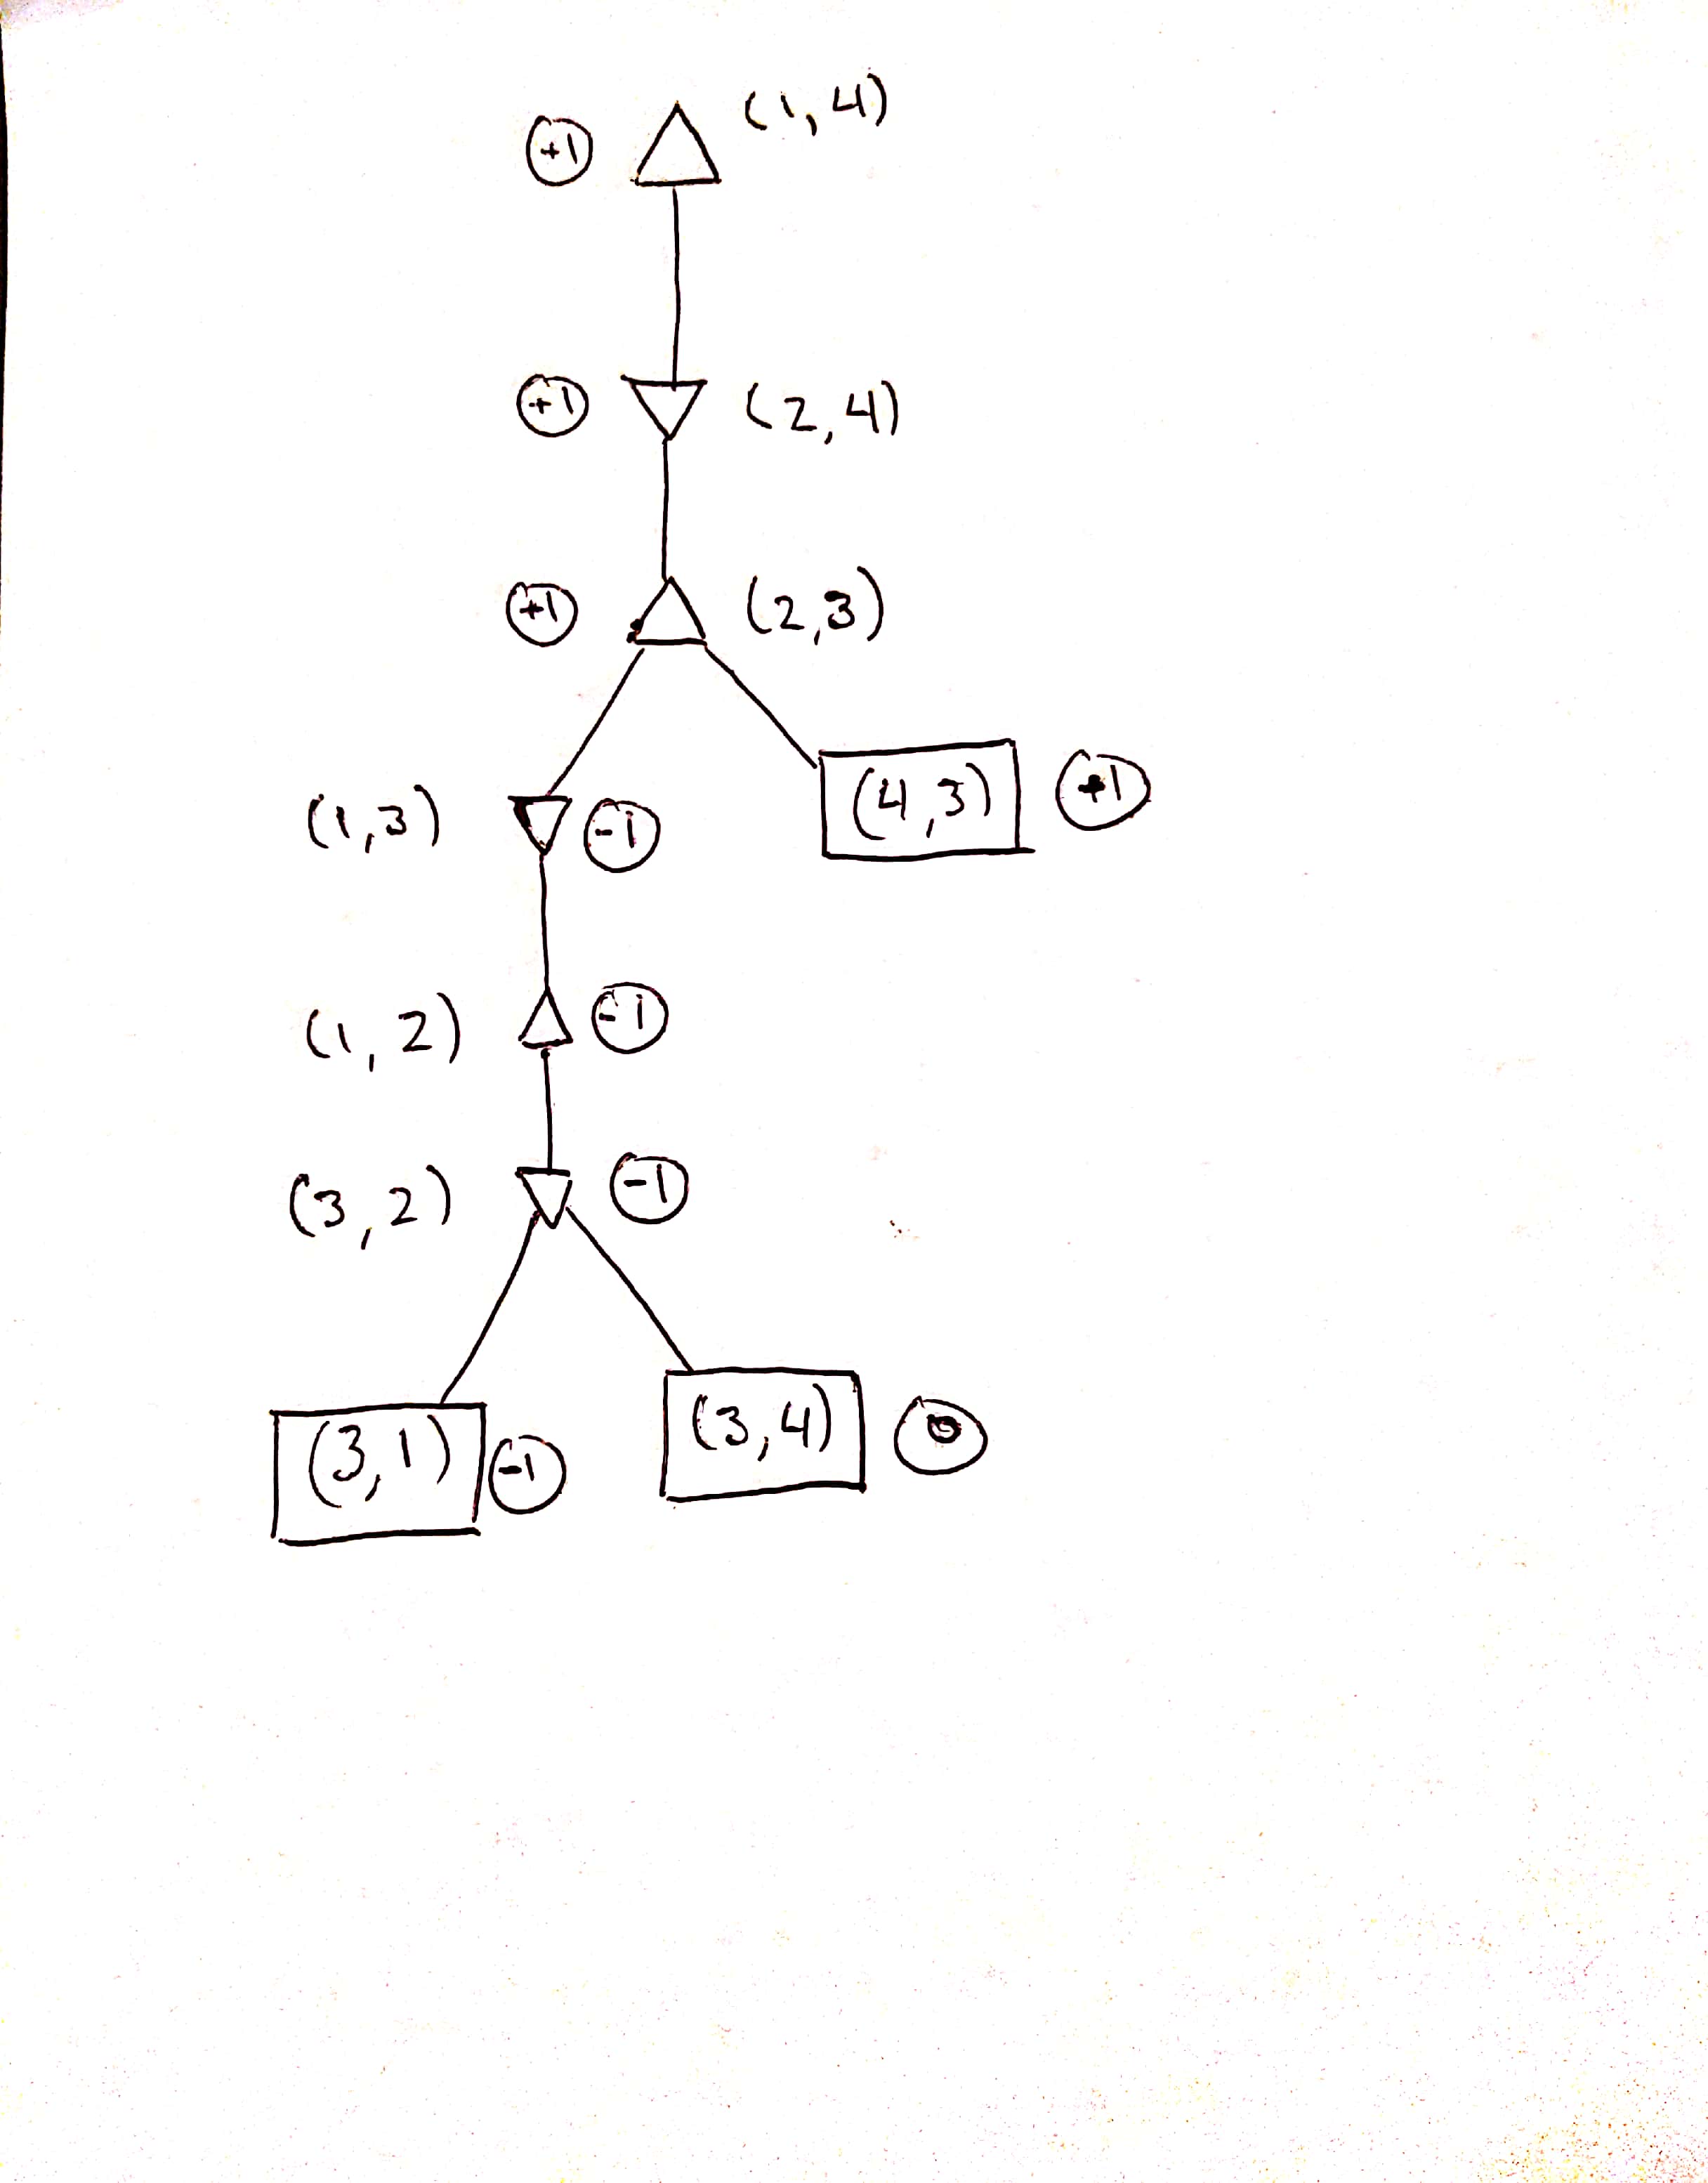 +1 (1,4)
+1 (2,4)
+1 (2,3)
(1,3) -1 (4,3) +1
(1,2) -1
(3,2) -1
(3,1) -1 (3,4) 0